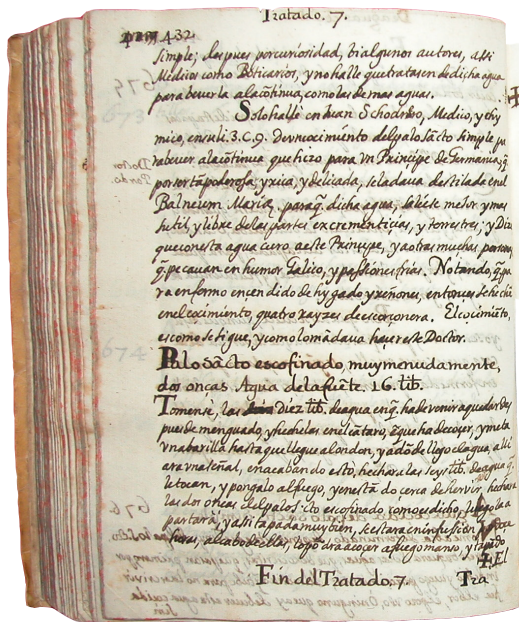 Tratado. 7.
432
simple; despues por curiosidad, vi algunos autores, assi
Medicos como Boticarios, y no halle que tratasen de dicha agua
para bever la a la cõtinua, como las demas aguas.
Solo halle en Juan Schodero, Medico, y chy
mico, en su li. 3. C. 9. de un cocimiento del palo sãcto simple, pa
ra bever a la cõtinua que hizo para un Principe de Germania, q̃
por ser tã poderoso, y rica, y delicada, se la dava destilada en el
Balneum Mariæ, para q̃. dicha agua, saliese mejor y mas
sutil, y libre de las partes excrementicias, y terrestres, y Dize
que con esta agua curo, a este Principe, y a otras muchas personas,
q̃. pecauan en humor Galico, y passiones frias. Notando, q̃. pa
ra enfermo encendido de hygado y reñones, entonces se hechã
en el cocimiento, quatro rayzes de escorçonera. El cocimiẽto,
es como se sigue, y como lo mãdava haçer este Doctor.
Doctor
Pardo.
Palo Sãcto escofinado, muy menudamente,
dos onças. Agua de la fuẽte. 16. lib.
Tomense, las Diez lib. de agua en q̃. ha de venir a quedar des
pues de menguado, y hechelas en el cãtaro, en que ha de coçer, y meta
una barilla hasta que llegue al ondon, y adõde llego el agua, alli
ara una señal, en acabando esto, hechara las seys lib. de agua q̃.
le tocan, y pongalo al fuego, y en estãdo cerca de hervir, hechara
las dos onças del palo sãcto escofinado como es dicho, luego la a
partara, y assi tapada muy bien, se estara en infusion
horas, al cabo de ellas, lo põdra a coçer a fuego manso, y tapado
El
Fin del Tratado. 7.
Tra